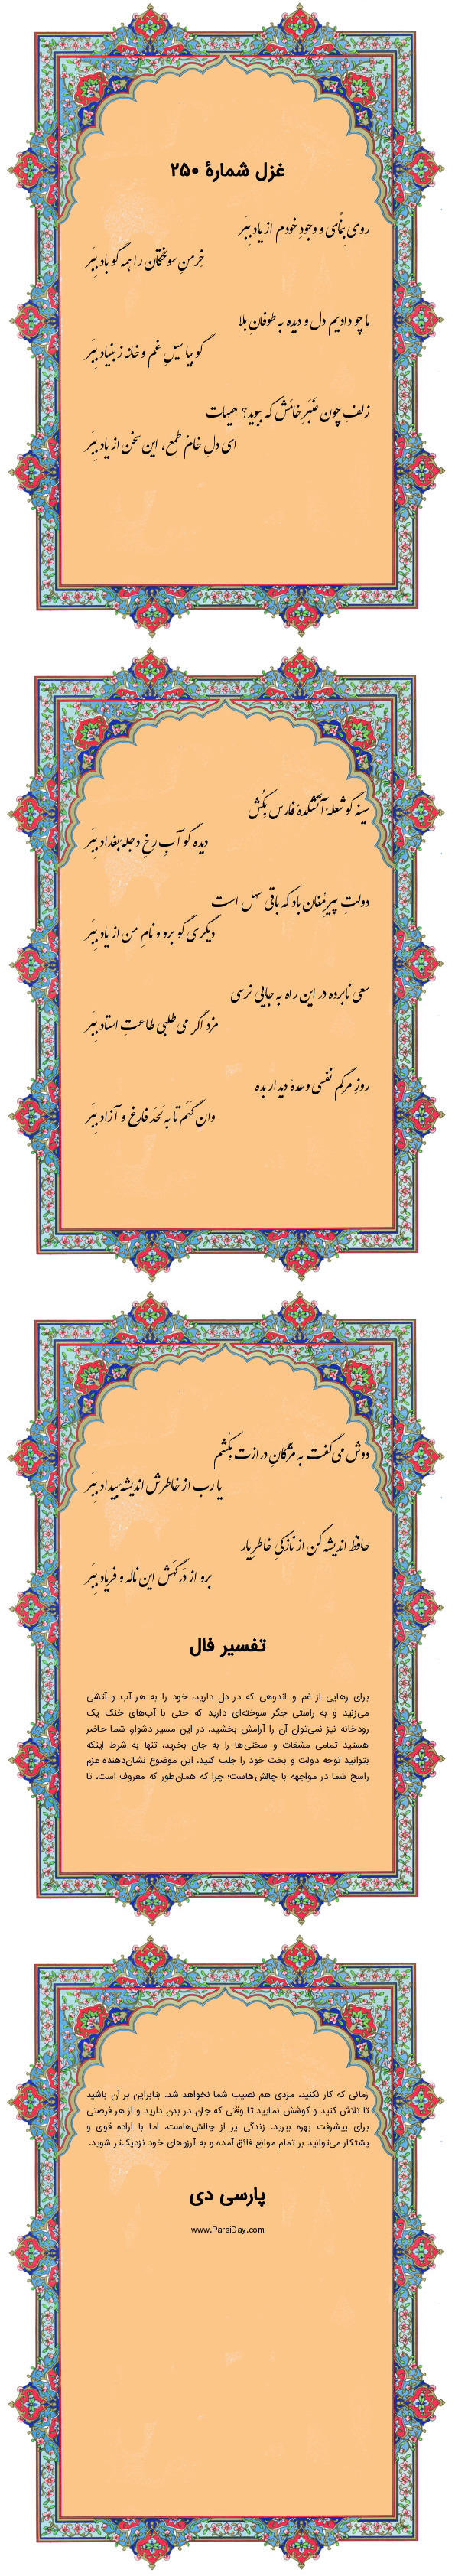 غزل شمارهٔ ۲۵۰
روی بِنْمای و وجودِ خودم از یاد بِبَر
خِرمنِ سوختگان را همه گو باد بِبَر
ما چو دادیم دل و دیده به طوفانِ بلا
گو بیا سیلِ غم و خانه ز بنیاد بِبَر
زلفِ چون عَنبَرِ خامَش که ببوید؟ هیهات
ای دلِ خام طمع، این سخن از یاد بِبَر
سینه گو شعلهٔ آتشکدهٔ فارس بِکُش
دیده گو آبِ رخِ دجلهٔ بغداد بِبَر
دولتِ پیرِ مُغان باد که باقی سهل است
دیگری گو برو و نامِ من از یاد بِبَر
سعی نابرده در این راه به جایی نرسی
مزد اگر می‌طلبی طاعتِ استاد بِبَر
روزِ مرگم نفسی وعدهٔ دیدار بده
وان گَهَم تا به لَحَد فارغ و آزاد بِبَر
دوش می‌گفت به مژگانِ درازت بِکُشَم
یا رب از خاطرش اندیشهٔ بیداد بِبَر
حافظ اندیشه کن از نازکیِ خاطرِ یار
برو از درگَهَش این ناله و فریاد بِبَر
تفسیر فال
برای رهایی از غم و اندوهی که در دل دارید، خود را به هر آب و آتشی
می‌زنید و به راستی جگر سوخته‌ای دارید که حتی با آب‌های خنک یک
رودخانه نیز نمی‌توان آن را آرامش بخشید. در این مسیر دشوار، شما حاضر
هستید تمامی مشقات و سختی‌ها را به جان بخرید، تنها به شرط اینکه
بتوانید توجه دولت و بخت خود را جلب کنید. این موضوع نشان‌دهنده عزم
راسخ شما در مواجهه با چالش‌هاست؛ چرا که همان‌طور که معروف است، تا
زمانی که کار نکنید، مزدی هم نصیب شما نخواهد شد. بنابراین بر آن باشید
تا تلاش کنید و کوشش نمایید تا وقتی که جان در بدن دارید و از هر فرصتی
برای پیشرفت بهره ببرید. زندگی پر از چالش‌هاست، اما با اراده قوی و
پشتکار می‌توانید بر تمام موانع فائق آمده و به آرزوهای خود نزدیک‌تر شوید.
پارسی دی
www.ParsiDay.com